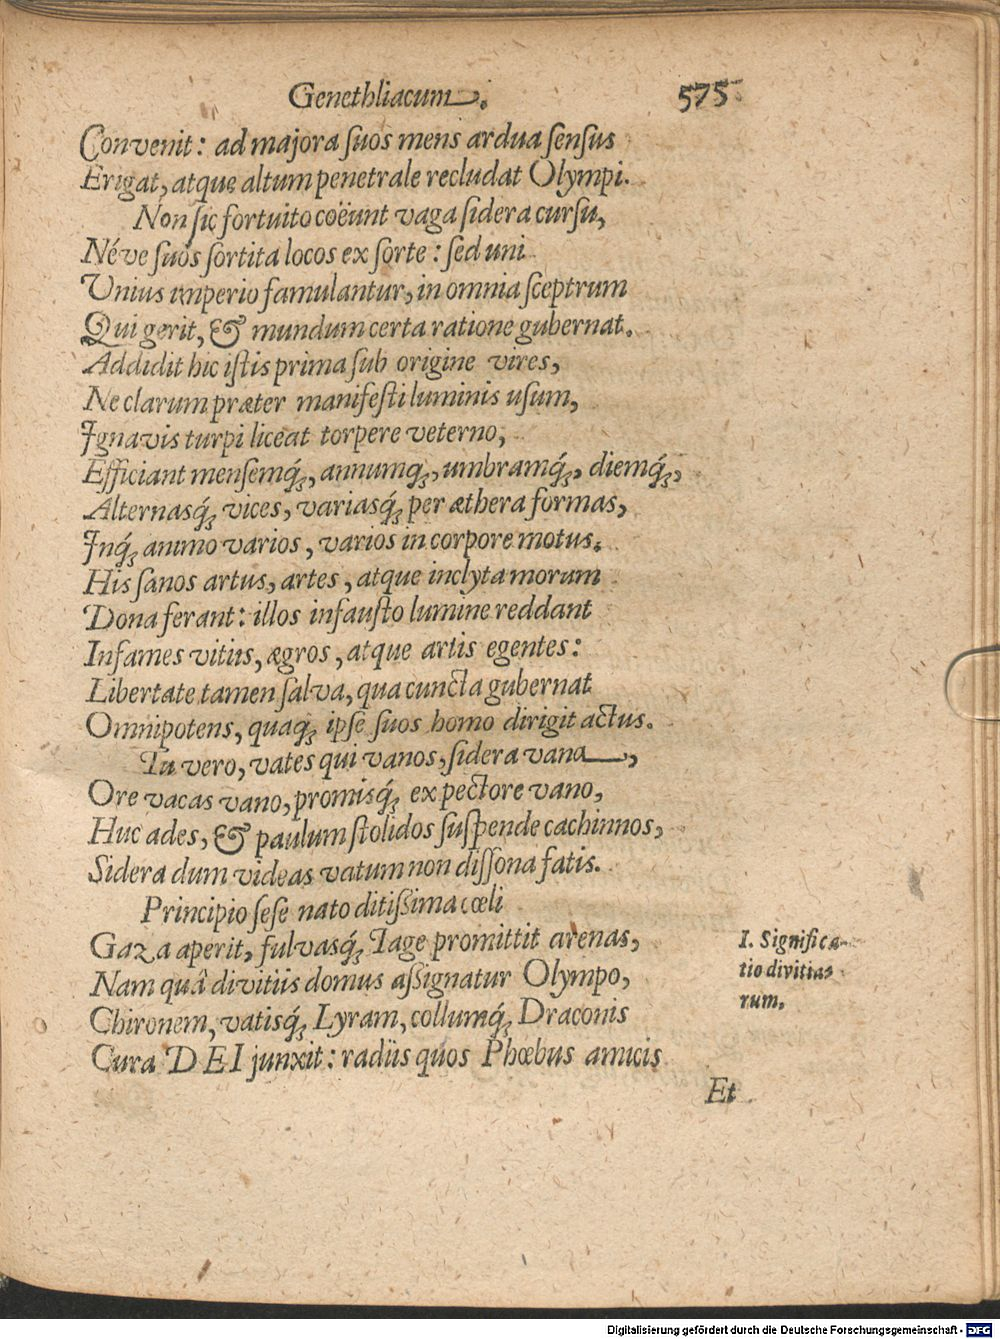 Genethliacum. 575
Convenit: ad majora ſuos mens ardua ſenſus
Erigat, atque altum penetrale recludat Olympi.
Non ſic fortuito coëunt vaga ſidera curſu,
Néve ſuos ſortita locos ex ſorte: ſed uni
Unius imperio famulantur, in omnia ſceptrum
Qui gerit, & mundum certa ratione gubernat.
Addidit hic iſtis prima ſub origine vires,
Ne clarum præter manifeſti luminis uſum,
Ignavis turpi liceat torpere veterno,
Efficiant menſemq́;, annumq́;, umbramq́;, diemq́;,
Alternasq́; vices, variasq́; per æthera formas,
Inq́; animo varios, varios in corpore motus.
His ſanos artus, artes, atque inclyta morum
Dona ferant: illos infauſto lumine reddant
Infames vitiis, ægros, atque artis egentes:
Libertate tamen ſalva, qua cuncta gubernat
Omnipotens, quaq́; ipſe ſuos homo dirigit actus.
Tu vero, vates qui vanos, ſidera vana,
Ore vacas vano, promisq́; ex pectore vano,
Huc ades, & paulum ſtolidos ſuſpende cachinnos,
Sidera dum videas vatum non diſſona fatis.
Principio ſeſe nato ditiſſima cœli
Gaza aperit, fulvasq́; Tage promittit arenas,
Nam quâ divitiis domus aſſignatur Olympo,
Chironem, vatisq́; Lyram, collumq́; Draconis
Cura DEI junxit: radiis quos Phœbus amicis
I. Significa-
tio divitia-
rum.
Et
Digitalisierung gefördert durch die Deutsche Forschungsgemeinschaft - DFG